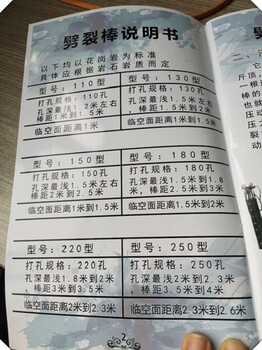 劈裂棒说明书
以下均以花岗岩为标准
具体应根据岩石岩质而定
型号：110型
打孔规格：110孔
孔深最浅1.5米左右
棒距1米到1.5米
临空面距离1米
型号：130型
打孔规格：130孔
孔深最浅1.5米左右
棒距1.5米到2米
临空面距离1米到1.5米
型号：150型
打孔规格：150孔
孔深最浅1.5米左右
棒距2米到2.5米
临空面距离1米到1.5米
型号：180型
打孔规格：180孔
孔深最浅1.5米到2米
棒距2.5米到3米
临空面距离1.5米到2米
型号：220型
打孔规格：220孔
孔深最浅1.8米到2米
棒距3米到3.5米
临空面距离2米到2.3米
型号：250型
打孔规格：250孔
孔深最浅2米到2.3米
棒距3.5米到4米
临空面距离2.3米到2.6米
2